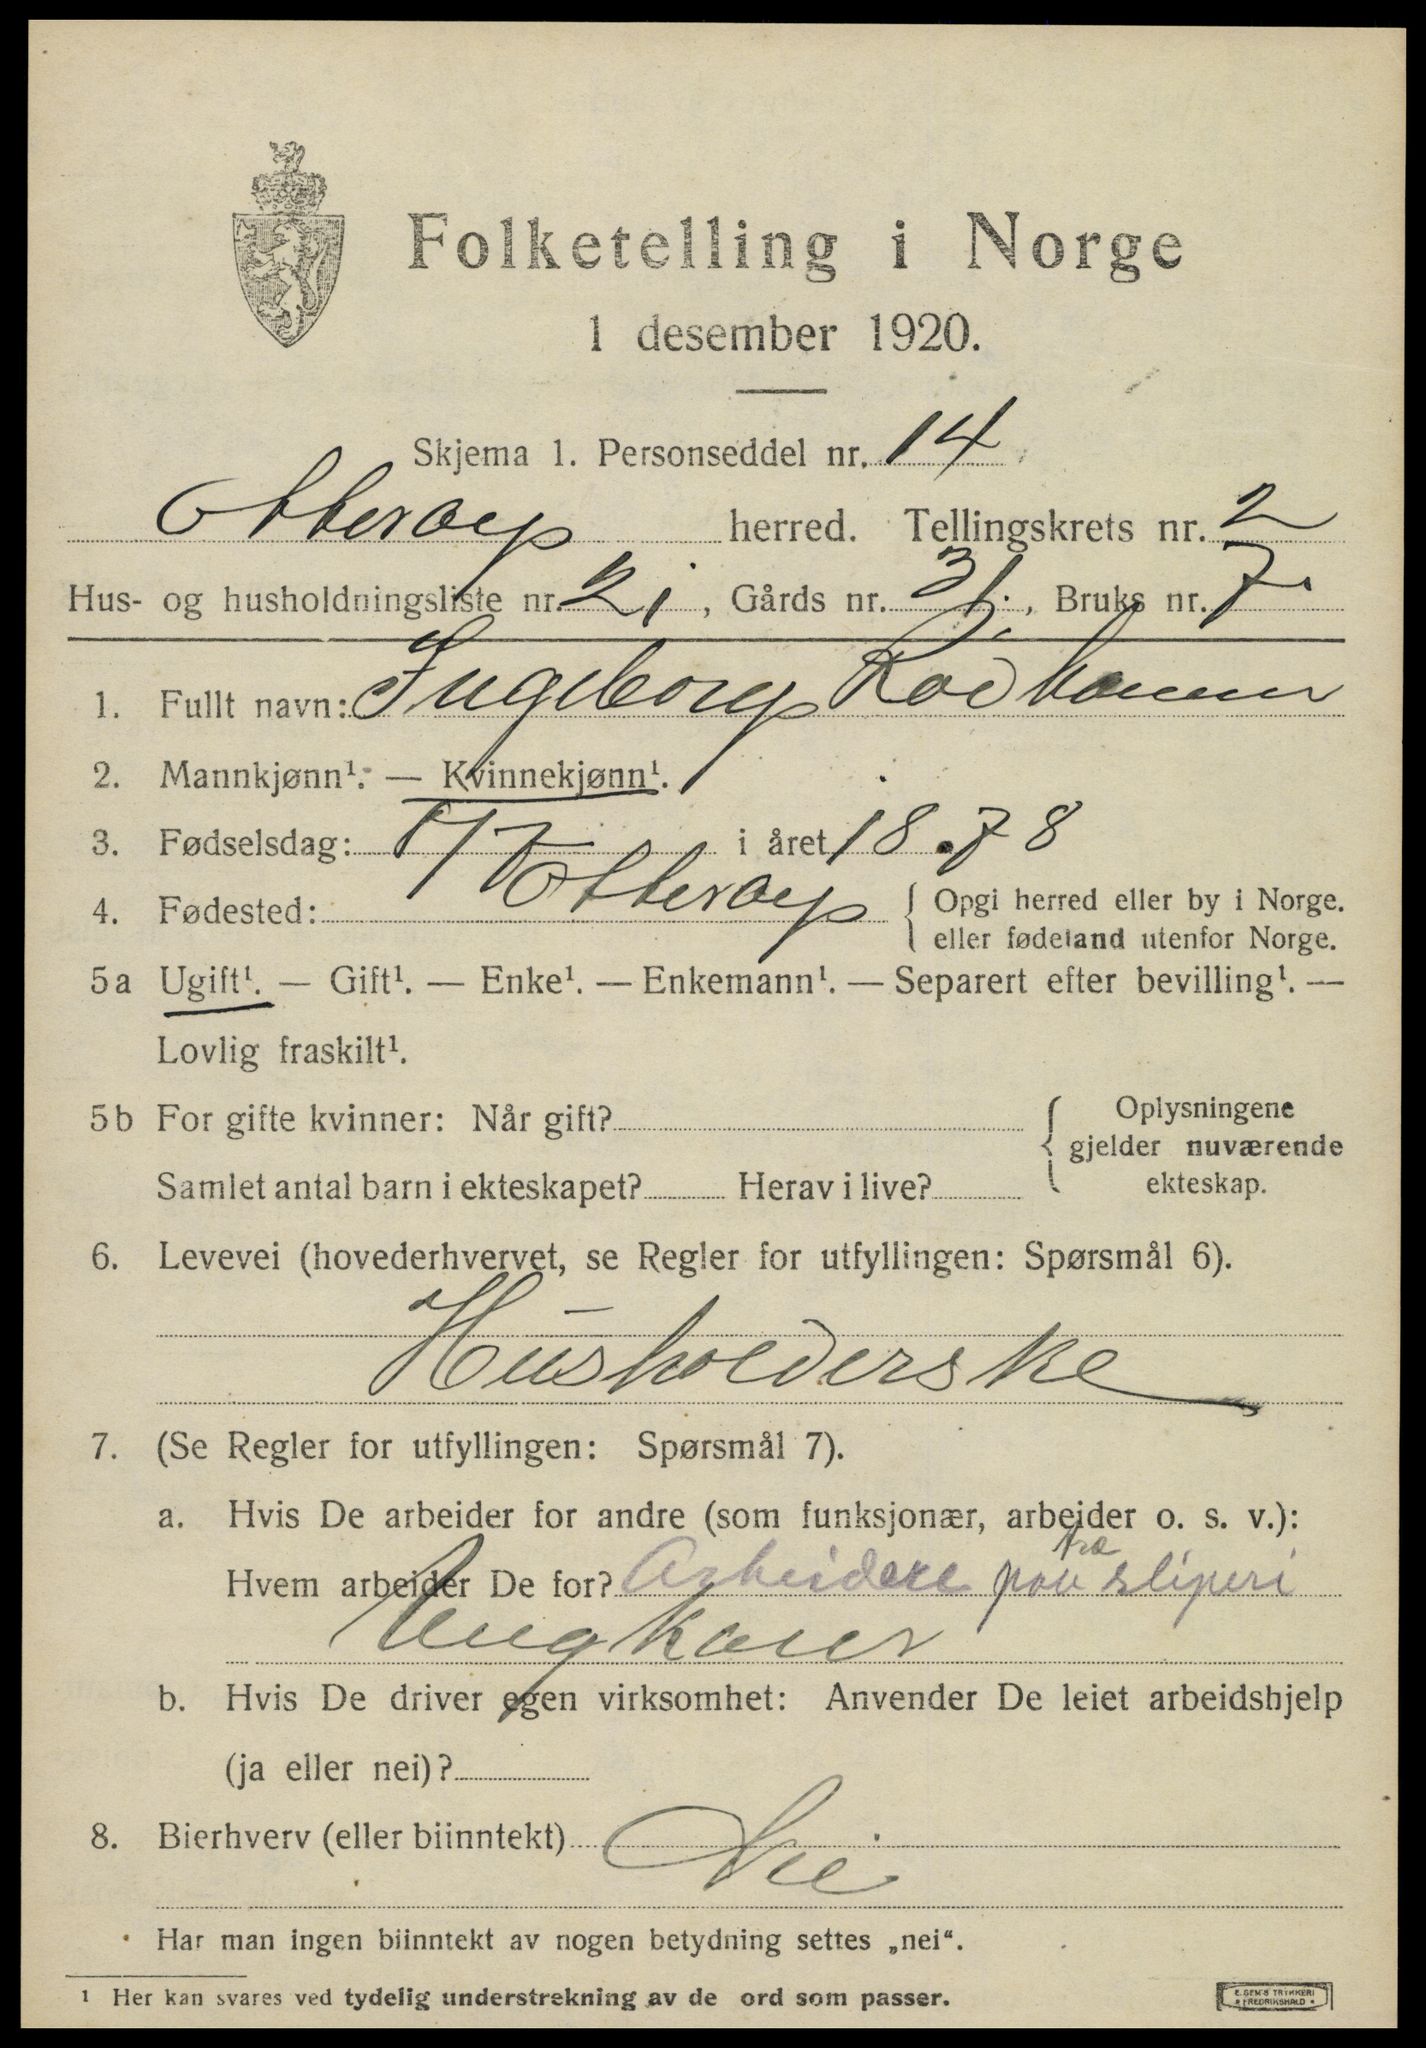 Folketelling i Norge
1 desember 1920.
Skjema 1. Personseddel nr. 14
Otterøy herred. Tellingskrets nr. 2
Hus- og husholdningsliste nr. 21, Gårds nr. Bruks nr. 7
1. Fullt navn: Ingeborg
2. Mannkjønn¹. — Kvinnekjønn¹.
3. Fødselsdag: i året 1878
4. Fødested: Otterøy { Opgi herred eller by i Norge.
eller fødeland utenfor Norge.
5a Ugift¹. — Gift¹. — Enke¹. — Enkemann¹. — Separert efter bevilling¹. —
Lovlig fraskilt¹.
5b For gifte kvinner: Når gift? { Oplysningene
gjelder nuværende
Samlet antal barn i ekteskapet? Herav i live? ekteskap.
6. Levevei (hovederhvervet, se Regler for utfyllingen: Spørsmål 6).
Husholderske
7. (Se Regler for utfyllingen: Spørsmål 7).
a. Hvis De arbeider for andre (som funksjonær, arbeider o. s. v.):
Hvem arbeider De for? Arbeidere paa træsliperi
Ungkarer
b. Hvis De driver egen virksomhet: Anvender De leiet arbeidshjelp
(ja eller nei)?
8. Bierhverv (eller biinntekt) Nei
Har man ingen biinntekt av nogen betydning settes „nei“.
¹ Her kan svares ved tydelig understrekning av de ord som passer.
E. SEM'S TRYKKERI
FREDRIKSHALD